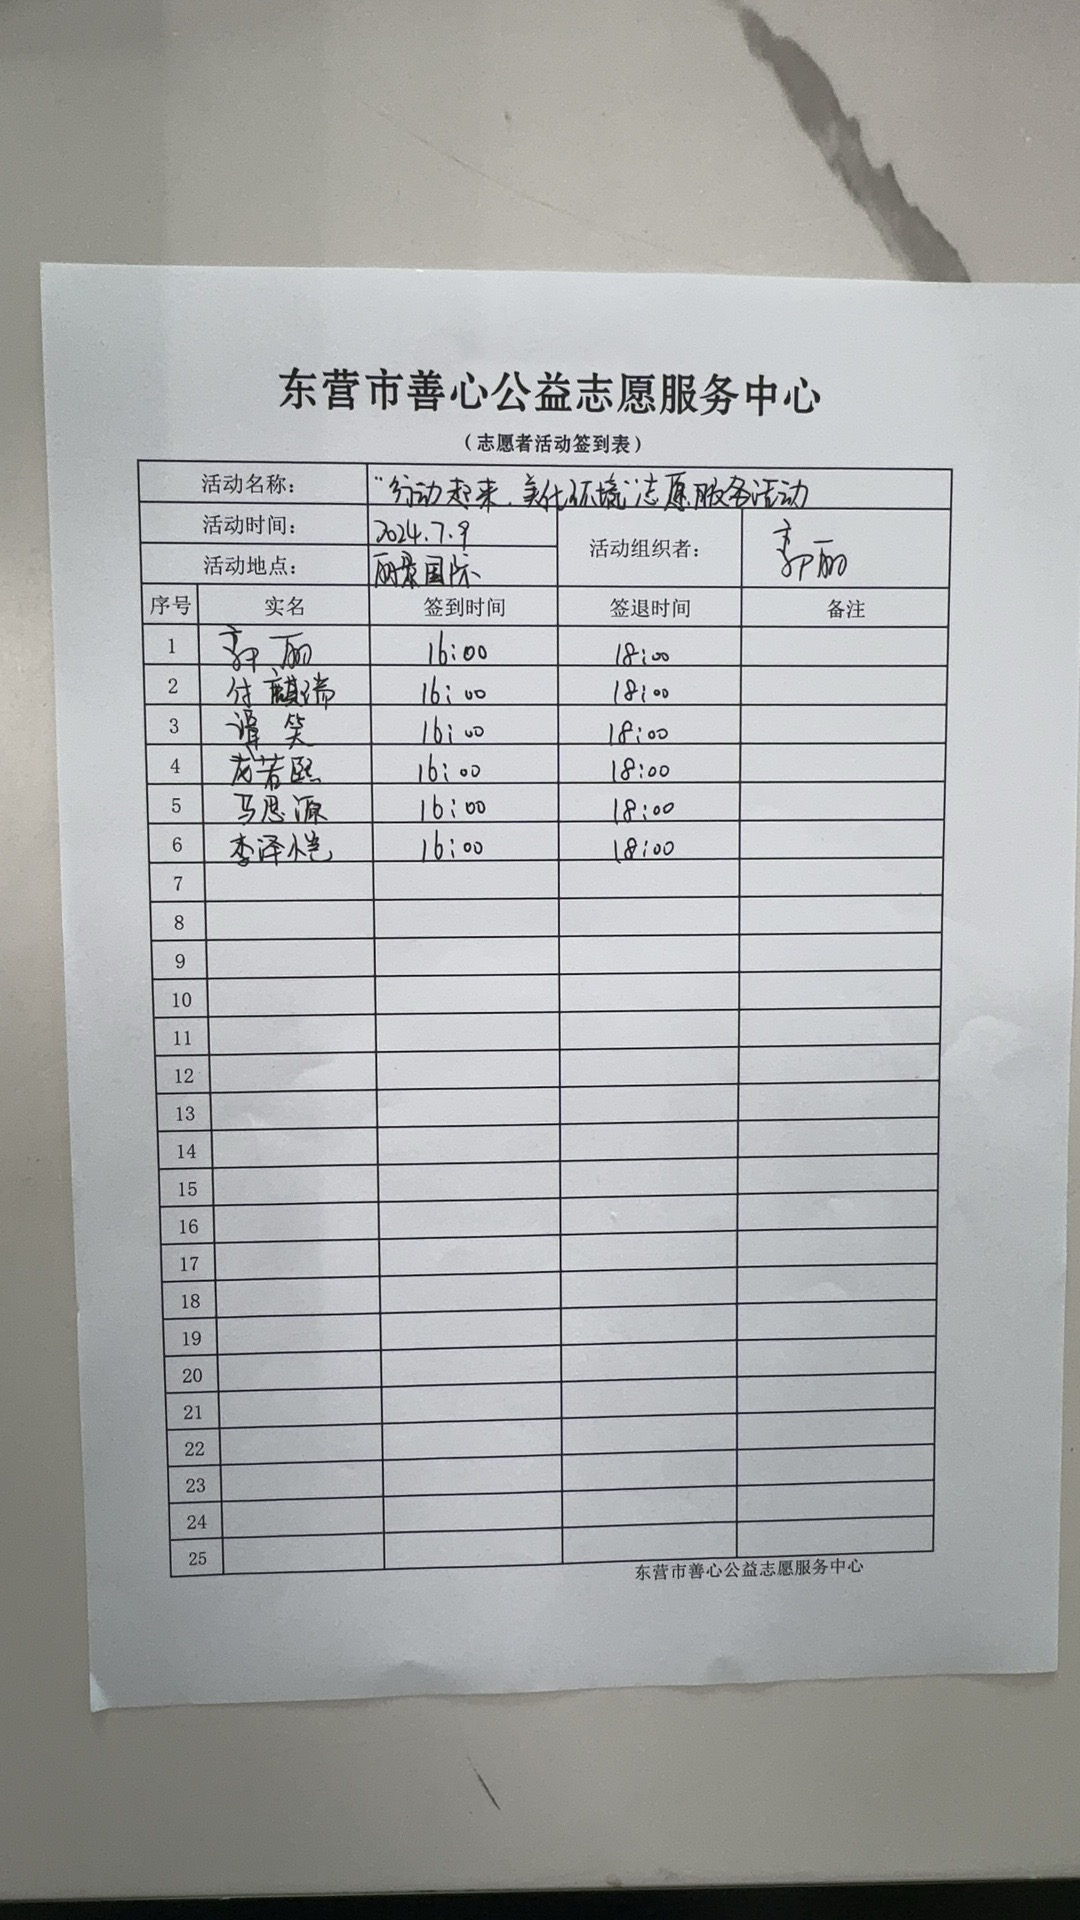 东营市善心公益志愿服务中心
（志愿者活动签到表）
活动名称： "行动起来、美化环境"志愿服务活动
活动时间： 2024.7.9 活动组织者： 郭丽
活动地点： 丽景国际
序号 实名 签到时间 签退时间 备注
1 郭丽 16:00 18:00
2 付麒瑞 16:00 18:00
3 谭笑 16:00 18:00
4 若熙 16:00 18:00
5 马思源 16:00 18:00
6 李泽恺 16:00 18:00
7
8
9
10
11
12
13
14
15
16
17
18
19
20
21
22
23
24
25
东营市善心公益志愿服务中心